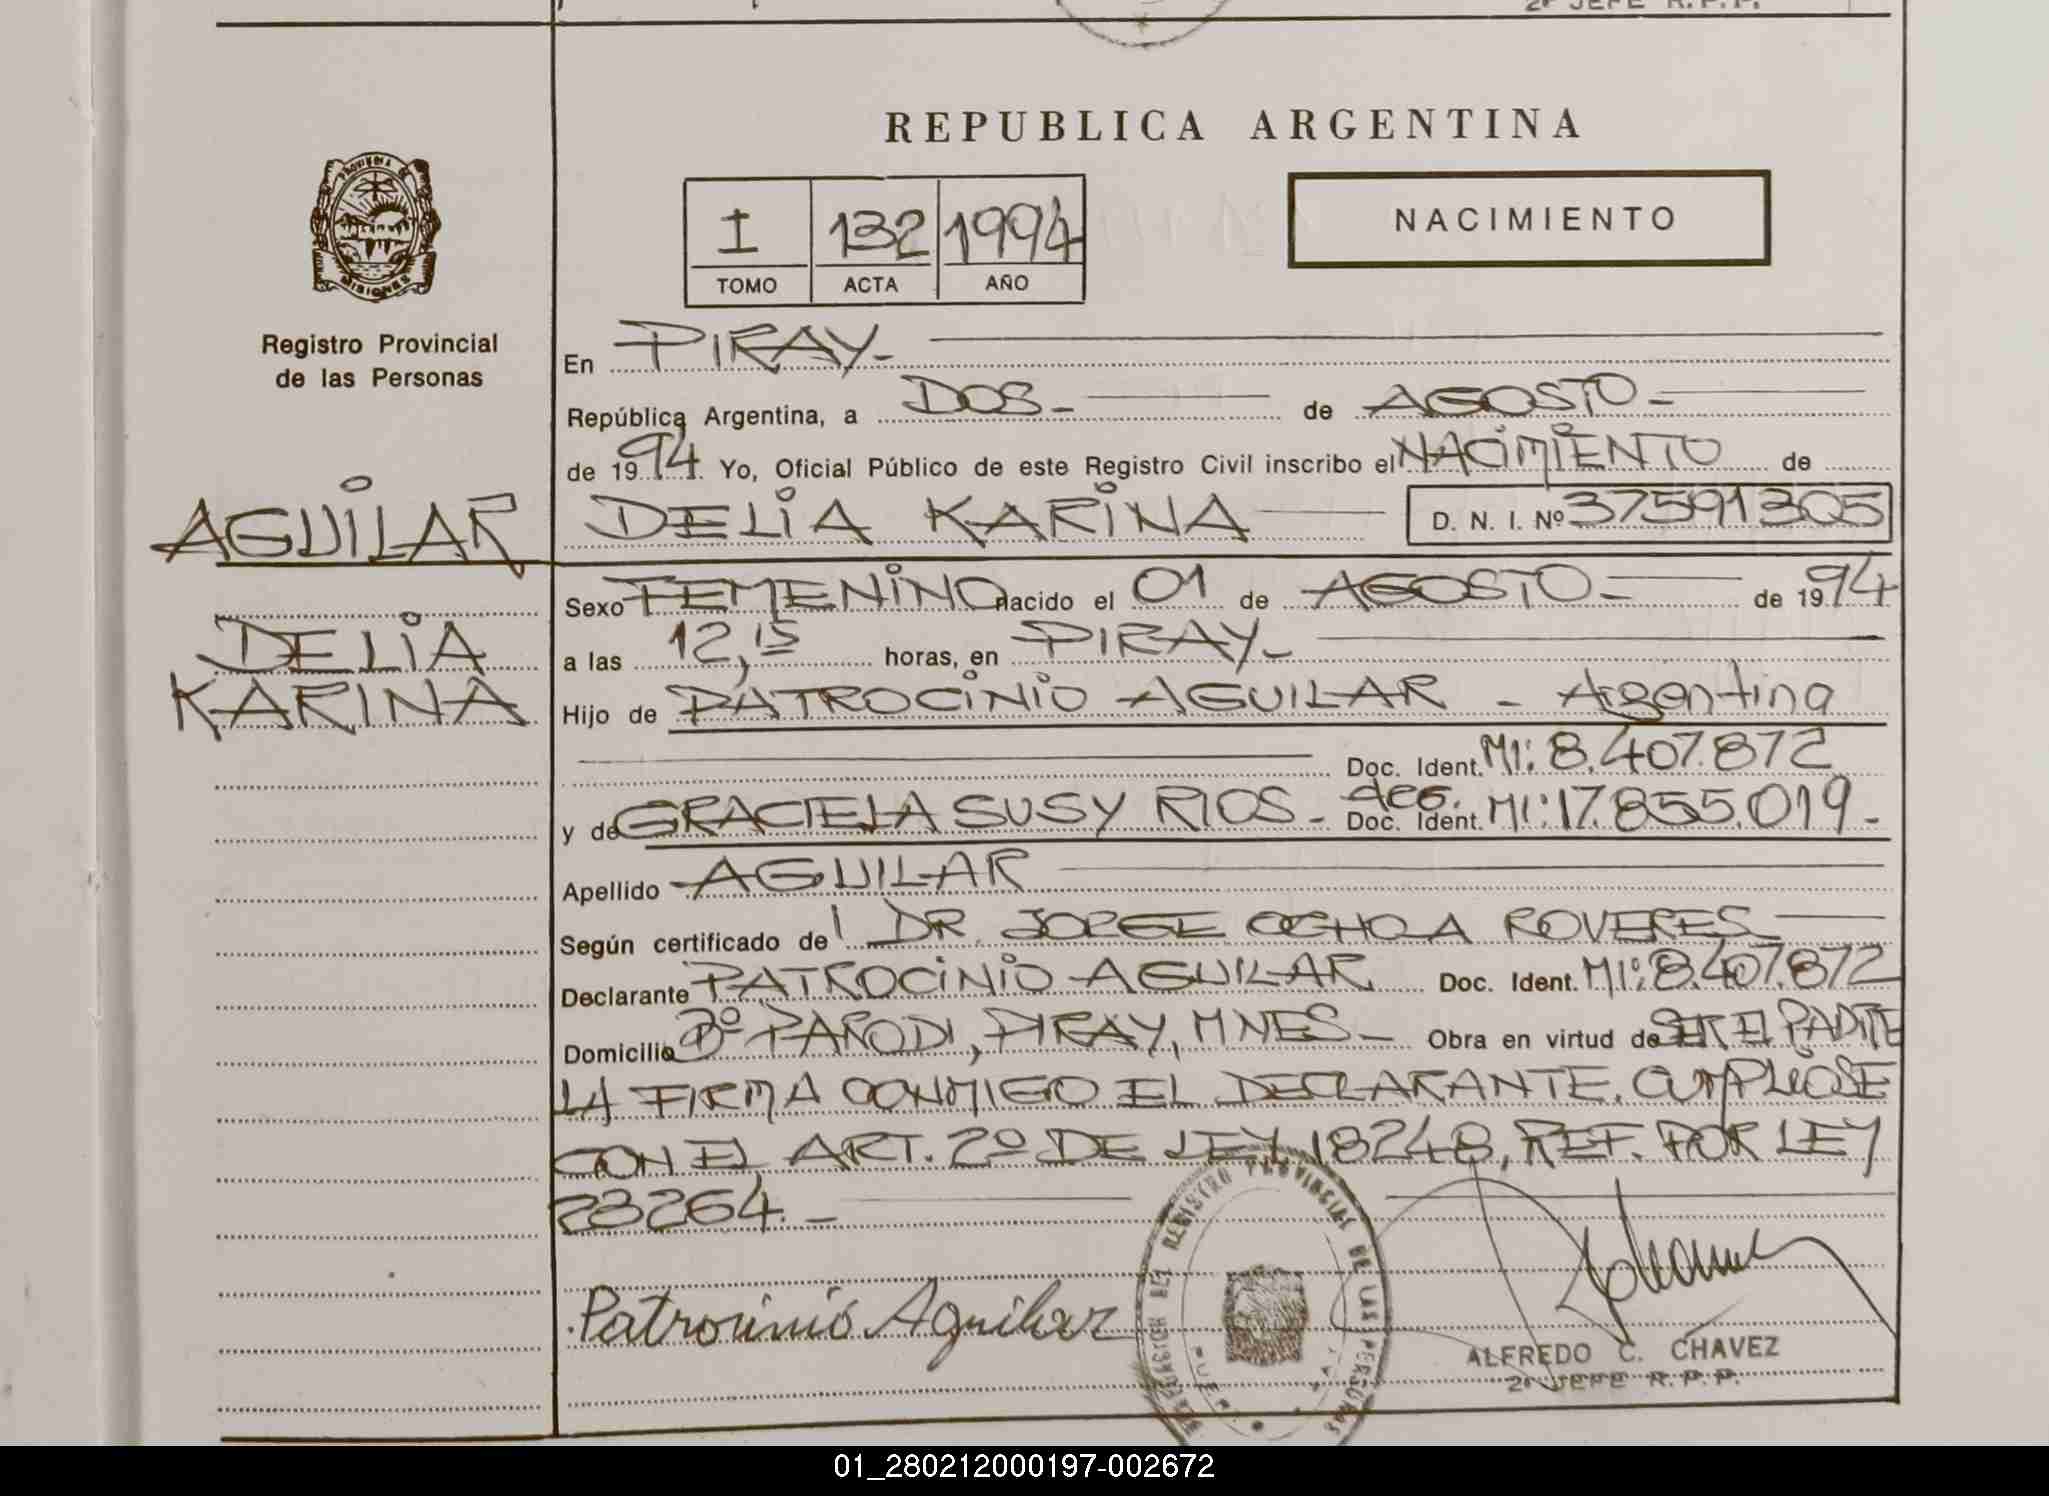 2º JEFE R.P.P.
REPUBLICA ARGENTINA
PROVINCIA DE
MISIONES
I 132 1994
TOMO ACTA AÑO
NACIMIENTO
Registro Provincial
de las Personas
En PIRAY-
República Argentina, a DOS- de AGOSTO-
de 1994. Yo, Oficial Público de este Registro Civil inscribo el NACIMIENTO de
AGUILAR
DELIA KARINA D. N. I. Nº 37591305
Sexo FEMENINO nacido el 01 de AGOSTO- de 1994
DELIA
KARINA
a las 12,15 horas, en PIRAY-
Hijo de PATROCINIO AGUILAR - Argentina
Doc. Ident. MI: 8.407.872
y de GRACIELA SUSY RIOS- Doc. Ident. MI: 17.855.019-
Apellido AGUILAR
Según certificado de DR. JORGE OCHOA ROVERES
Declarante PATROCINIO AGUILAR Doc. Ident. MI: 8.407.872
Domicilio Bº PARODI, PIRAY, MNES- Obra en virtud de SER EL PADRE
LA FIRMA CONMIGO EL DECLARANTE. CUMPLIOSE
CON EL ART. 2º DE LEY 18248, REF. POR LEY
23264.-
Patrocinio Aguilar
REGISTRO PROVINCIAL DE LAS PERSONAS
ALFREDO C. CHAVEZ
2º JEFE R.P.P.
01_280212000197-002672